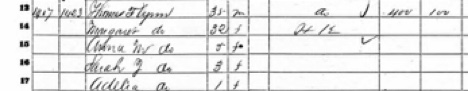 13 1417 1423 Thomas Lynn 35 m do 400 100
14 Margaret do 32 f
15 Anna M do 5 f
16 Sarah J do 3 f
17 Adelia do 1 f